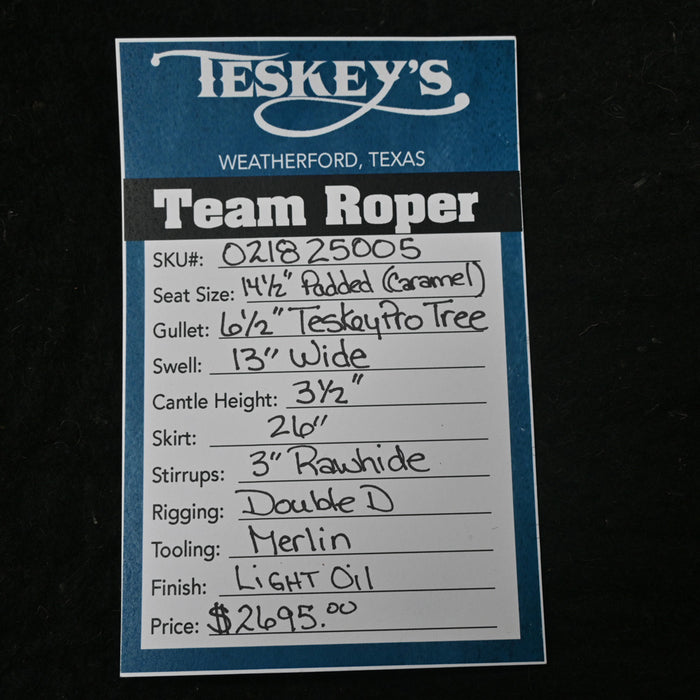 TESKEY'S
WEATHERFORD, TEXAS
Team Roper
SKU#: 021825005
Seat Size: 14½" Padded (Caramel)
Gullet: 6½" TeskeyPro Tree
Swell: 13" Wide
Cantle Height: 3½"
Skirt: 26"
Stirrups: 3" Rawhide
Rigging: Double D
Tooling: Merlin
Finish: LIGHT Oil
Price: $2695.00